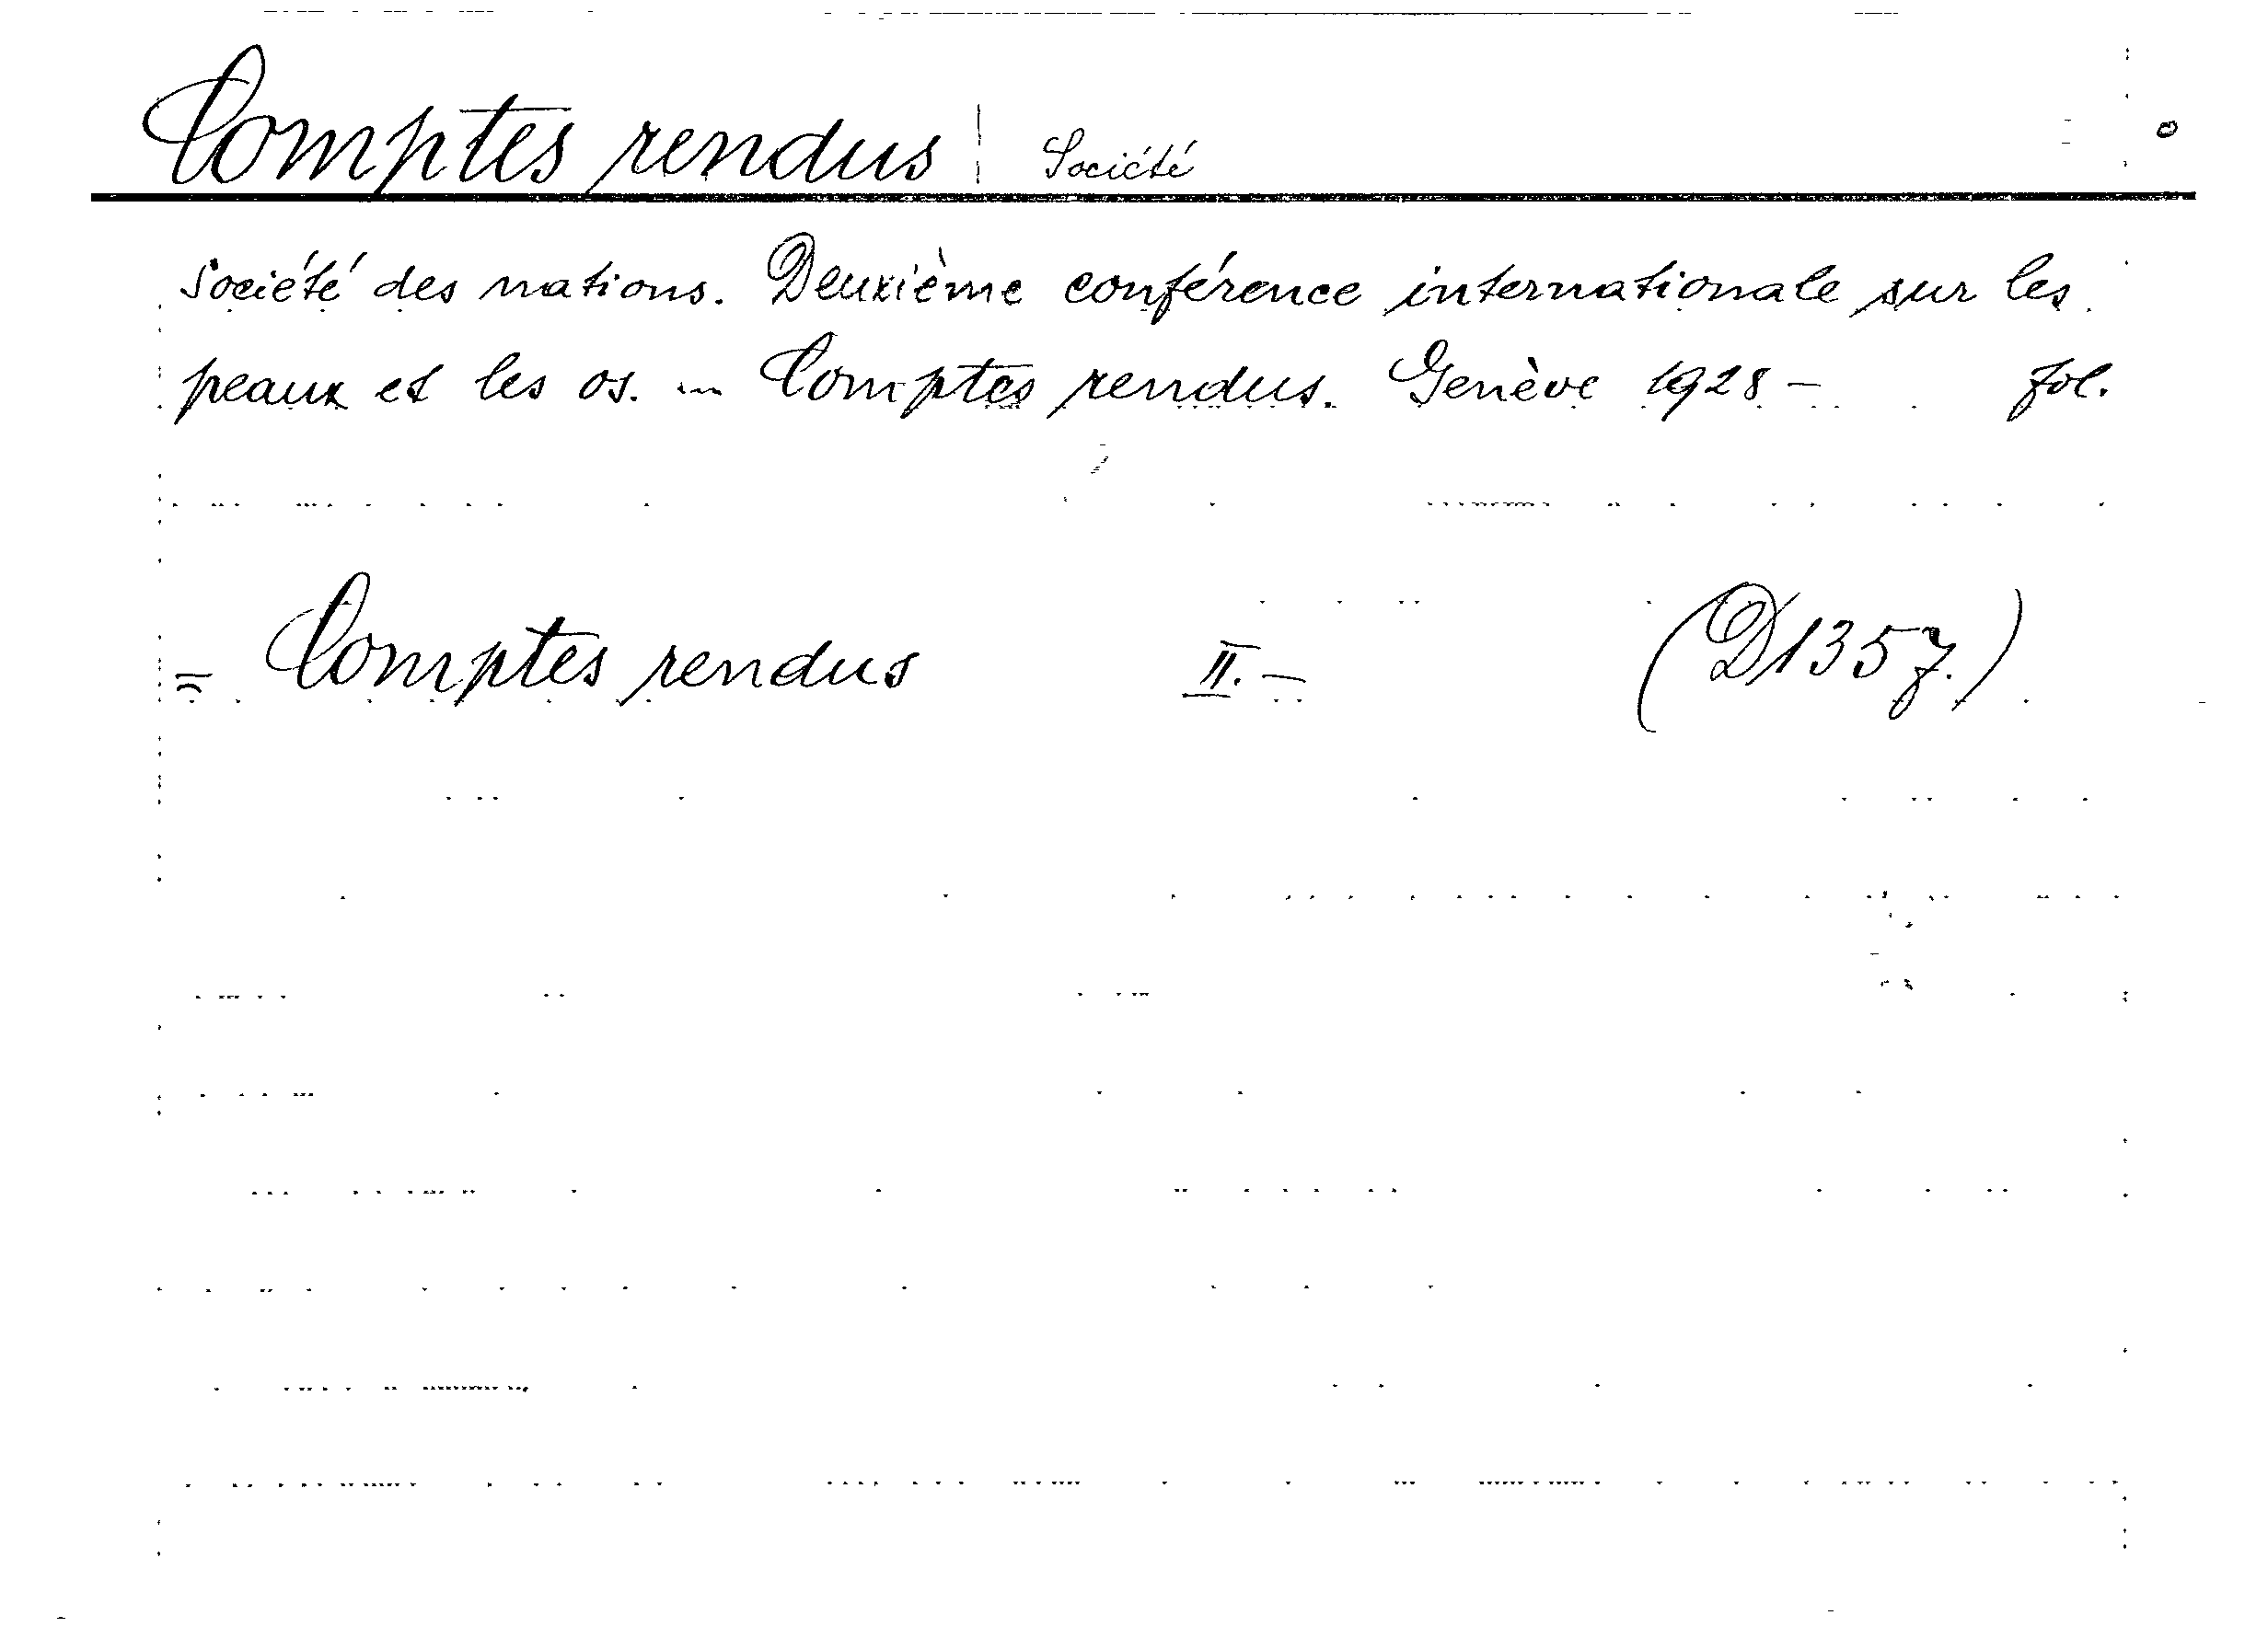 Comptes rendus | Société
Société des nations. Deuxième conférence internationale sur les
peaux et les os. ... Comptes rendus. Genève 1928 - fol.
= Comptes rendus II. - (D1357.)